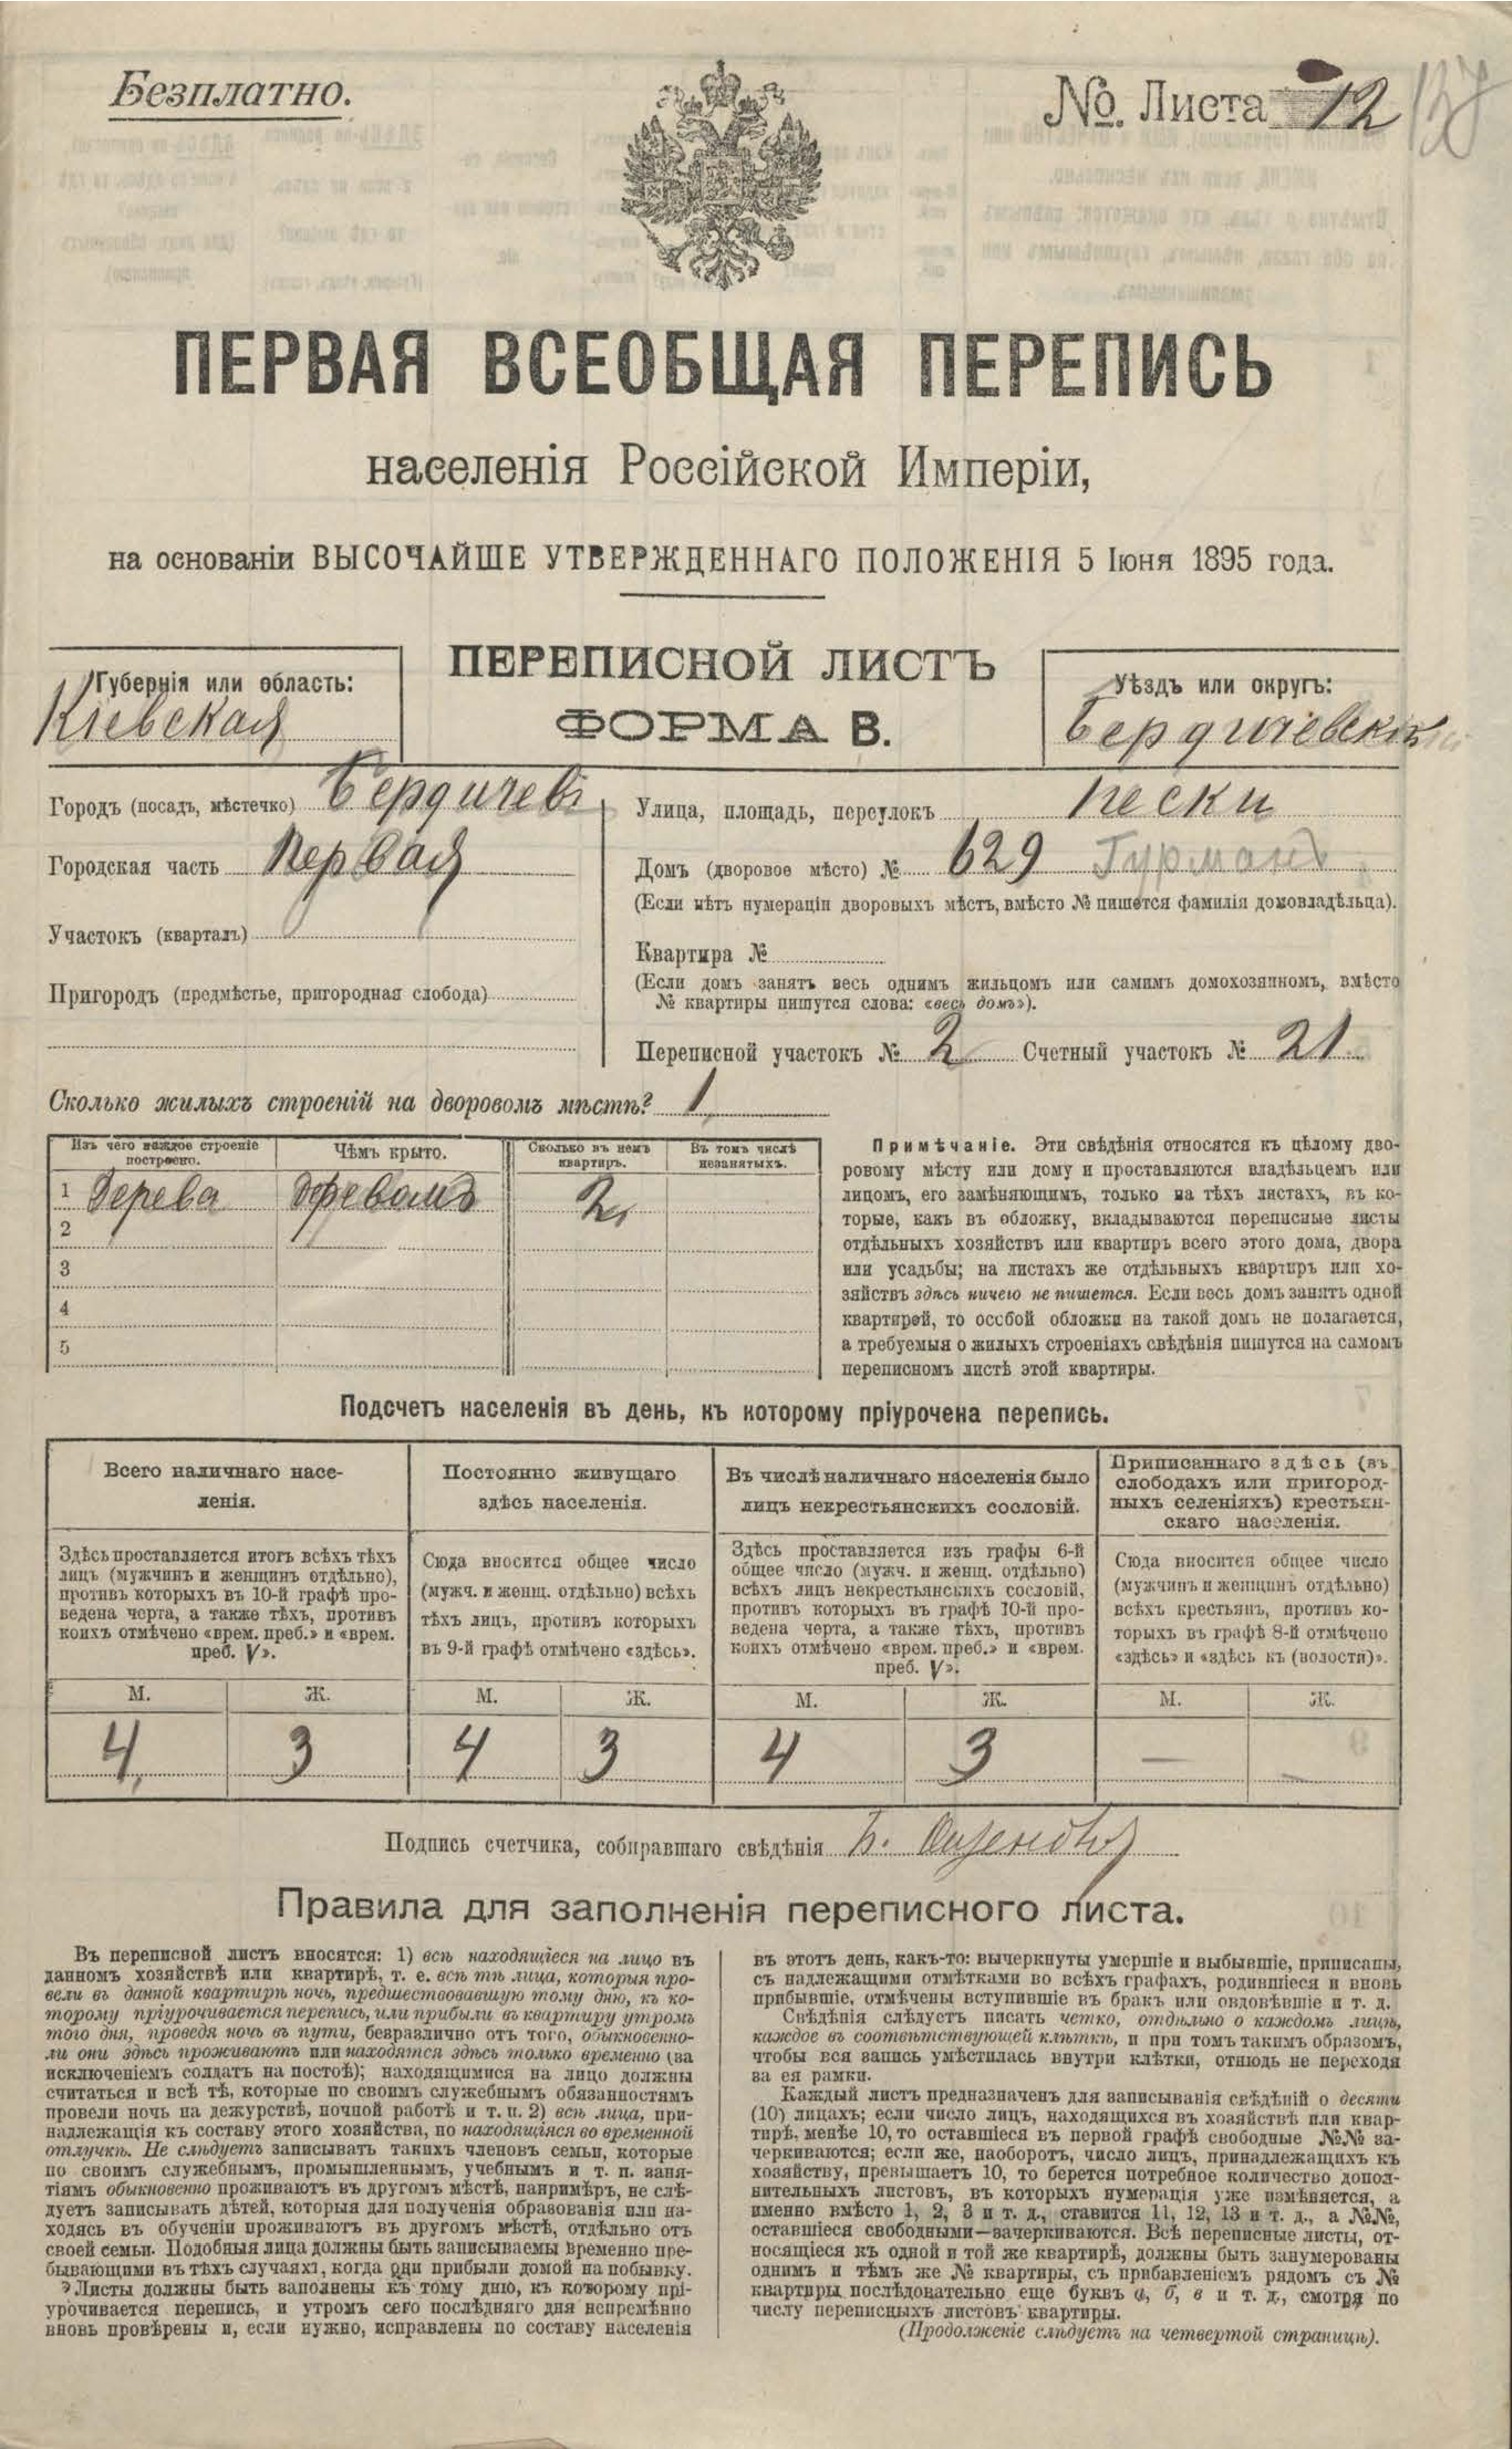 Безплатно.
№. Листа 12
ПЕРВАЯ ВСЕОБЩАЯ ПЕРЕПИСЬ
населенія Россійской Имперіи,
на основаніи ВЫСОЧАЙШЕ УТВЕРЖДЕННАГО ПОЛОЖЕНІЯ 5 Іюня 1895 года.
ПЕРЕПИСНОЙ ЛИСТЪ
ФОРМА В.
Губернія или область:
Кіевская
Уѣздъ или округъ:
Бердичевскій
Городъ (посадъ, мѣстечко) Бердичевъ
Городская часть Первая
Участокъ (кварталъ)
Пригородъ (предмѣстье, пригородная слобода)
Улица, площадь, переулокъ Пески
Домъ (дворовое мѣсто) № 629 Гурманъ
(Если нѣтъ нумераціи дворовыхъ мѣстъ, вмѣсто № пишется фамилія домовладѣльца).
Квартира №
(Если домъ занятъ весь однимъ жильцомъ или самимъ домохозяиномъ, вмѣсто
№ квартиры пишутся слова: «весь домъ»).
Переписной участокъ № 2 Счетный участокъ № 21
Сколько жилыхъ строеній на дворовомъ мѣстѣ? 1
Изъ чего каждое строеніе
построено.
Чѣмъ крыто.
Сколько въ немъ
квартиръ.
Въ томъ числѣ
незанятыхъ.
1 Дерева деревомъ 2
2
3
4
5
Примѣчаніе. Эти свѣдѣнія относятся къ цѣлому дво-
ровому мѣсту или дому и проставляются владѣльцемъ или
лицомъ, его замѣняющимъ, только на тѣхъ листахъ, въ ко-
торые, какъ въ обложку, вкладываются переписные листы
отдѣльныхъ хозяйствъ или квартиръ всего этого дома, двора
или усадьбы; на листахъ же отдѣльныхъ квартиръ или хо-
зяйствъ здѣсь ничего не пишется. Если весь домъ занятъ одной
квартирой, то особой обложки на такой домъ не полагается,
а требуемыя о жилыхъ строеніяхъ свѣдѣнія пишутся на самомъ
переписномъ листѣ этой квартиры.
Подсчетъ населенія въ день, къ которому пріурочена перепись.
Всего наличнаго насе-
ленія.
Здѣсь проставляется итогъ всѣхъ тѣхъ
лицъ (мужчинъ и женщинъ отдѣльно),
противъ которыхъ въ 10-й графѣ про-
ведена черта, а также тѣхъ, противъ
коихъ отмѣчено «врем. преб.» и «врем.
преб. V».
Постоянно живущаго
здѣсь населенія.
Сюда вносится общее число
(мужч. и женщ. отдѣльно) всѣхъ
тѣхъ лицъ, противъ которыхъ
въ 9-й графѣ отмѣчено «здѣсь».
Въ числѣ наличнаго населенія было
лицъ некрестьянскихъ сословій.
Здѣсь проставляется изъ графы 6-й
общее число (мужч. и женщ. отдѣльно)
всѣхъ лицъ некрестьянскихъ сословій,
противъ которыхъ въ графѣ 10-й про-
ведена черта, а также тѣхъ, противъ
коихъ отмѣчено «врем. преб.» и «врем.
преб. V».
Приписаннаго здѣсь (въ
слободахъ или пригород-
ныхъ селеніяхъ) крестьян-
скаго населенія.
Сюда вносится общее число
(мужчинъ и женщинъ отдѣльно)
всѣхъ крестьянъ, противъ ко-
торыхъ въ графѣ 8-й отмѣчено
«здѣсь» и «здѣсь къ (волости)».
М. Ж. М. Ж. М. Ж. М. Ж.
4 3 4 3 4 3 — —
Подпись счетчика, собиравшаго свѣдѣнія
Правила для заполненія переписного листа.
Въ переписной листъ вносятся: 1) всѣ находящіеся на лицо въ
данномъ хозяйствѣ или квартирѣ, т. е. всѣ тѣ лица, которыя про-
вели въ данной квартирѣ ночь, предшествовавшую тому дню, къ ко-
торому пріурочивается перепись, или прибыли въ квартиру утромъ
того дня, проведя ночь въ пути, безразлично отъ того, обыкновенно-
ли они здѣсь проживаютъ или находятся здѣсь только временно (за
исключеніемъ солдатъ на постоѣ); находящимися на лицо должны
считаться и всѣ тѣ, которые по своимъ служебнымъ обязанностямъ
провели ночь на дежурствѣ, ночной работѣ и т. п. 2) всѣ лица, при-
надлежащія къ составу этого хозяйства, но находящіяся во временной
отлучкѣ. Не слѣдуетъ записывать такихъ членовъ семьи, которые
по своимъ служебнымъ, промышленнымъ, учебнымъ и т. п. заня-
тіямъ обыкновенно проживаютъ въ другомъ мѣстѣ, напримѣръ, не слѣ-
дуетъ записывать дѣтей, которыя для полученія образованія или на-
ходясь въ обученіи проживаютъ въ другомъ мѣстѣ, отдѣльно отъ
своей семьи. Подобныя лица должны быть записываемы временно пре-
бывающими въ тѣхъ случаяхъ, когда они прибыли домой на побывку.
Листы должны быть заполнены къ тому дню, къ которому прі-
урочивается перепись, и утромъ сего послѣдняго дня непремѣнно
вновь провѣрены и, если нужно, исправлены по составу населенія
въ этотъ день, какъ-то: вычеркнуты умершіе и выбывшіе, приписаны,
съ надлежащими отмѣтками во всѣхъ графахъ, родившіеся и вновь
прибывшіе, отмѣчены вступившіе въ бракъ или овдовѣвшіе и т. д.
Свѣдѣнія слѣдуетъ писать четко, отдѣльно о каждомъ лицѣ,
каждое въ соотвѣтствующей клѣткѣ, и при томъ такимъ образомъ,
чтобы вся запись умѣстилась внутри клѣтки, отнюдь не переходя
за ея рамки.
Каждый листъ предназначенъ для записыванія свѣдѣній о десяти
(10) лицахъ; если число лицъ, находящихся въ хозяйствѣ или квар-
тирѣ, менѣе 10, то оставшіеся въ первой графѣ свободные №№ за-
черкиваются; если же, наоборотъ, число лицъ, принадлежащихъ къ
хозяйству, превышаетъ 10, то берется потребное количество допол-
нительныхъ листовъ, въ которыхъ нумерація уже измѣняется, а
именно вмѣсто 1, 2, 3 и т. д., ставится 11, 12, 13 и т. д., а №№,
оставшіеся свободными—зачеркиваются. Всѣ переписные листы, от-
носящіеся къ одной и той же квартирѣ, должны быть занумерованы
однимъ и тѣмъ же № квартиры, съ прибавленіемъ рядомъ съ №
квартиры послѣдовательно еще буквъ а, б, в и т. д., смотря по
числу переписныхъ листовъ квартиры.
(Продолженіе слѣдуетъ на четвертой страницѣ).